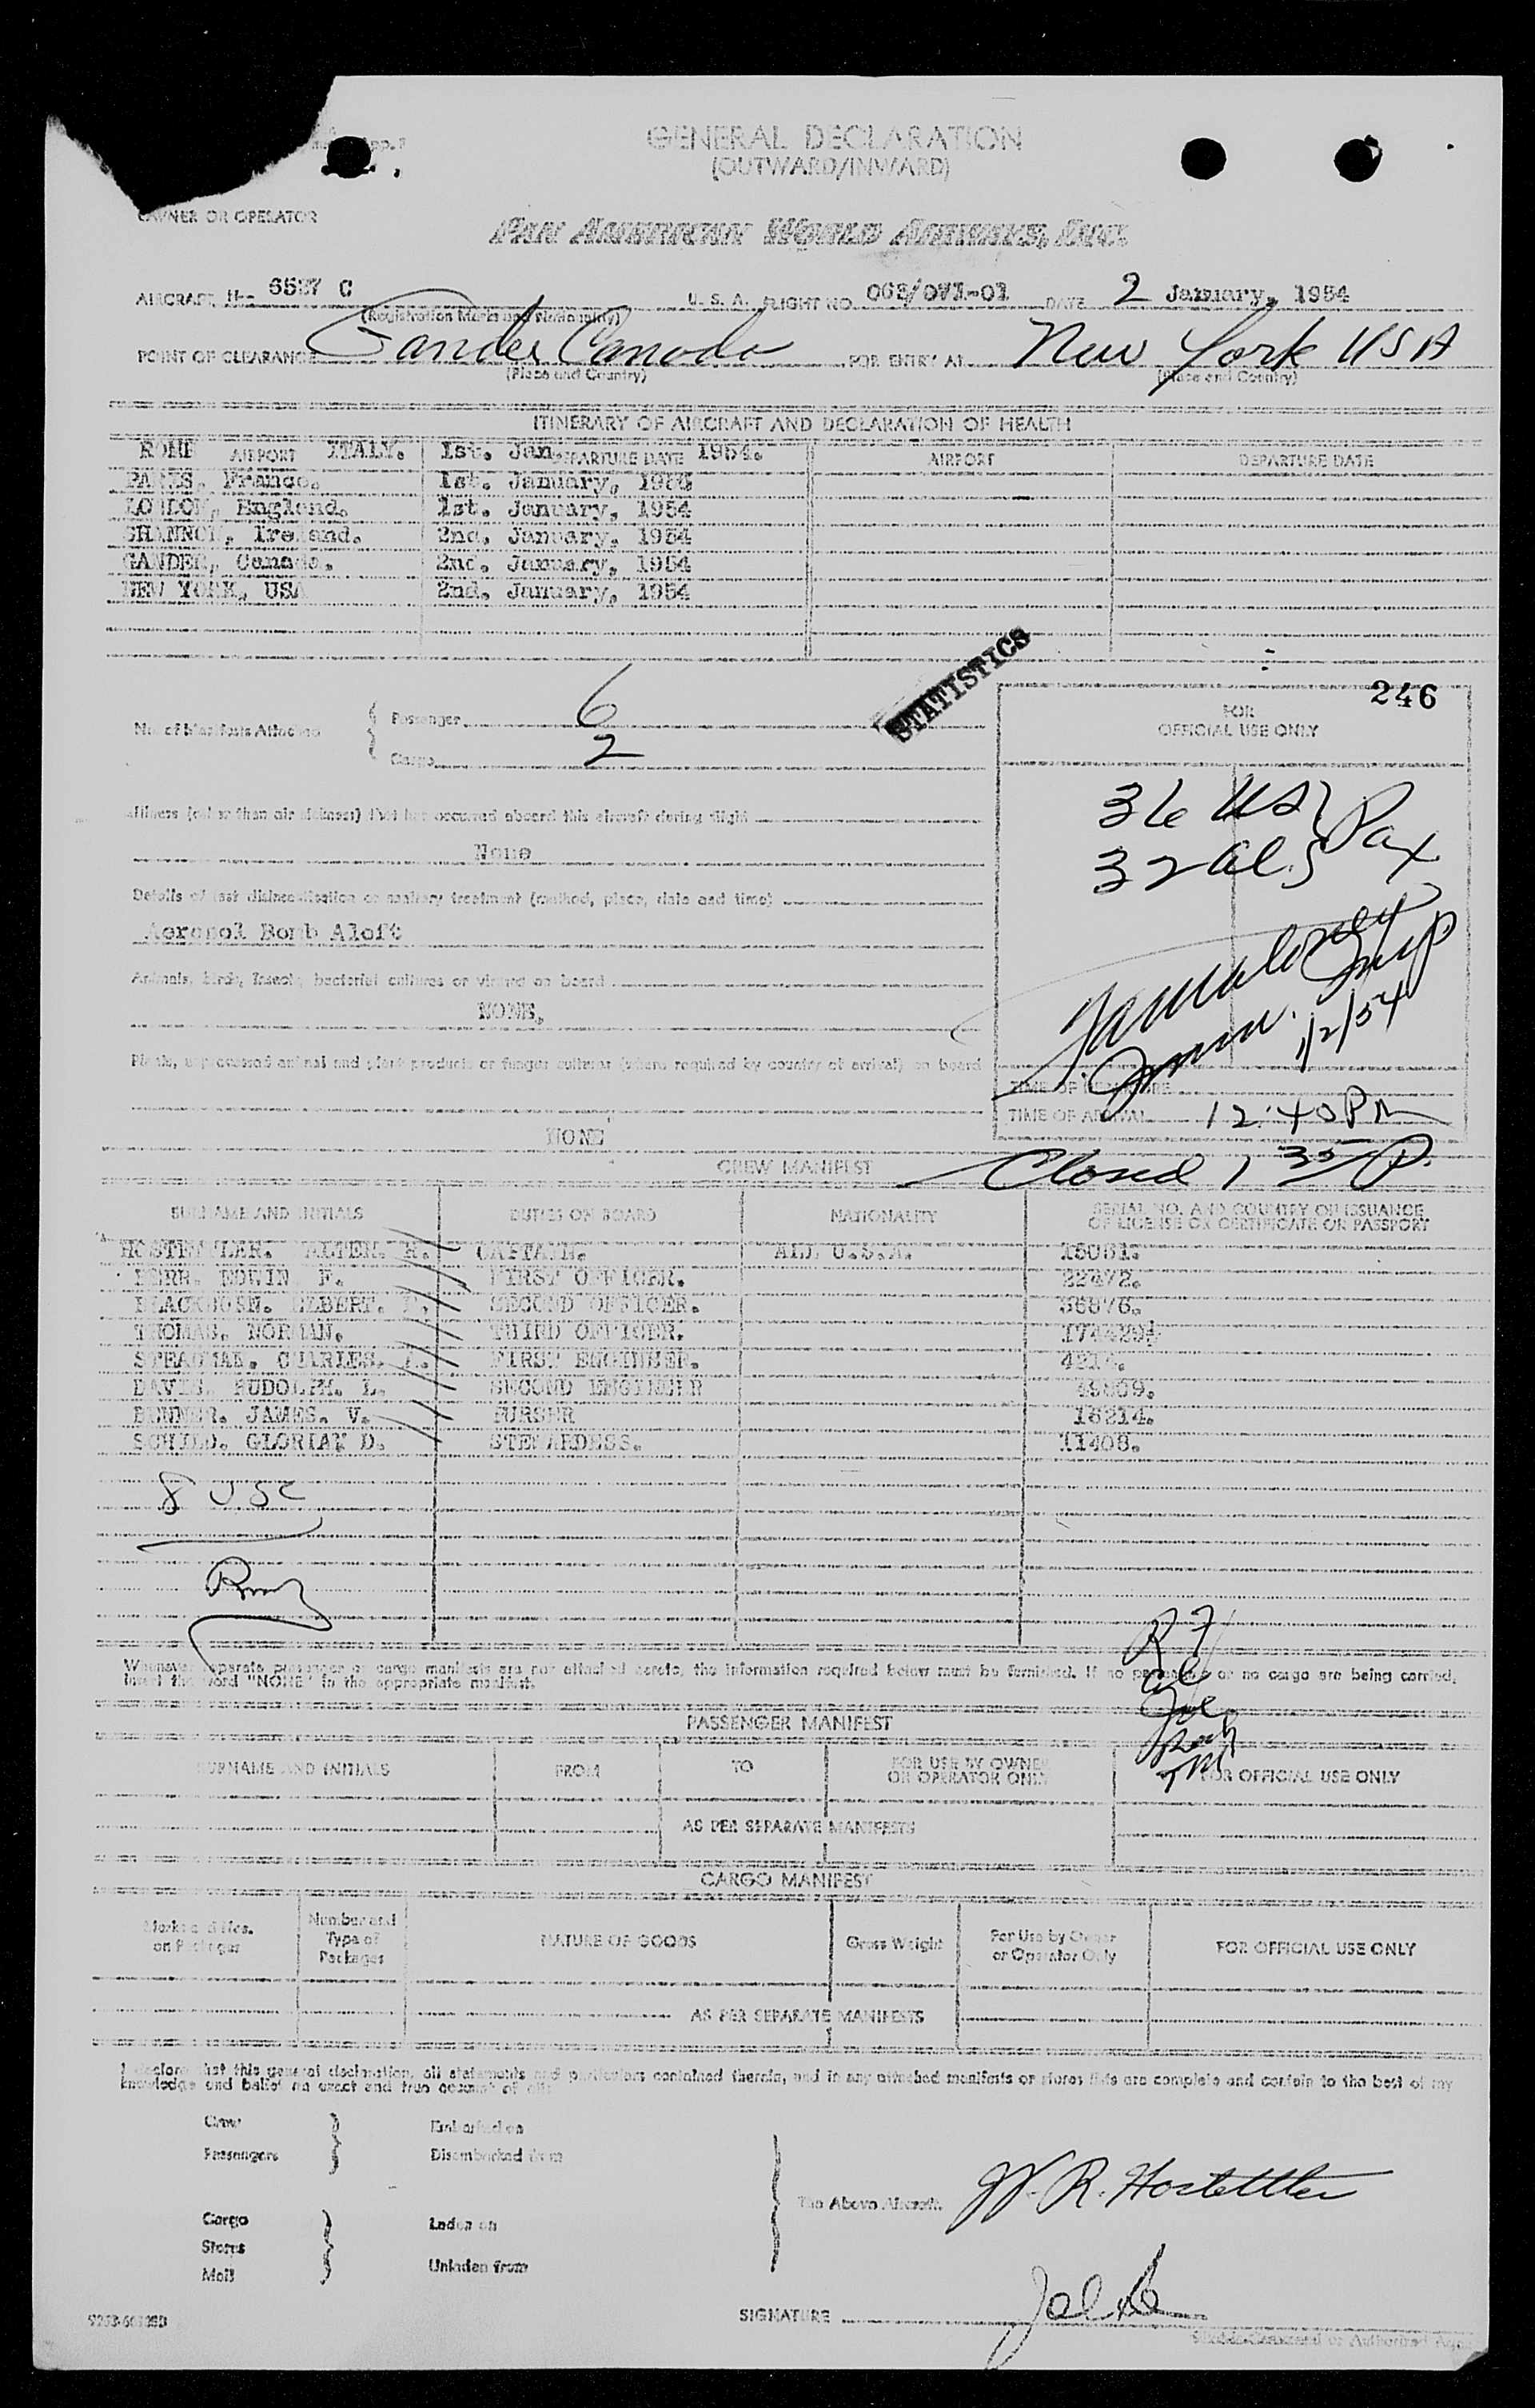 GENERAL DECLARATION
(OUTWARD/INWARD)
OWNER OR OPERATOR
PAN AMERICAN WORLD AIRWAYS, INC.
AIRCRAFT N- C U. S. A. FLIGHT NO. DATE 2 January, 1954
(Registration Marks and Nationality)
POINT OF CLEARANCE Gander Canada FOR ENTRY AT New York USA
(Place and Country) (Place and Country)
ITINERARY OF AIRCRAFT AND DECLARATION OF HEALTH
AIRPORT DEPARTURE DATE AIRPORT DEPARTURE DATE
ROME ITALY. 1st. Jan 1954.
PARIS, France. 1st. January, 1954
LONDON, England. 1st. January, 1954
SHANNON, Ireland. 2nd. January, 1954
GANDER, Canada. 2nd. January, 1954
NEW YORK, USA 2nd. January, 1954
STATISTICS
246
FOR
OFFICIAL USE ONLY
No. of Manifests Attached
Passenger 6
Cargo 2
36 USC
32 Al. Pax
Illness (other than air sickness) that has occurred aboard this aircraft during flight
None
Details of last disinsectisation or sanitary treatment (method, place, date and time)
Aerosol Bomb Aloft
Animals, birds, insects, bacterial cultures or viruses on board
NONE.
Insp
Imm. 1/2/54
Plants, unprocessed animal and plant products or fungus cultures (where required by country of arrival) on board
NONE
TIME OF DEPARTURE
TIME OF ARRIVAL 12:40 PM
Closed 1 35 P.
CREW MANIFEST
SURNAME AND INITIALS DUTIES ON BOARD NATIONALITY SERIAL NO. AND COUNTRY OF ISSUANCE
OF LICENSE OR CERTIFICATE OR PASSPORT
HOSTETTLER. WALTER. R. CAPTAIN. ALL U.S.A.
EDWIN F. FIRST OFFICER. 22472.
ELBERT. SECOND OFFICER.
THOMAS. NORMAN. THIRD OFFICER.
STEADMAN. CHARLES. FIRST ENGINEER. 4214.
DAVIS. RUDOLPH. L. SECOND ENGINEER
JAMES. V. PURSER 16214.
SCHILD. GLORIA D. STEWARDESS. 11408.
8 USC
Whenever separate passenger or cargo manifests are not attached hereto, the information required below must be furnished. If no passengers or no cargo are being carried,
insert the word "NONE" in the appropriate manifest.
PASSENGER MANIFEST
SURNAME AND INITIALS FROM TO FOR USE BY OWNER
OR OPERATOR ONLY FOR OFFICIAL USE ONLY
AS PER SEPARATE MANIFESTS
CARGO MANIFEST
Marks and Nos.
on Packages
Number and
Type of
Packages
NATURE OF GOODS
Gross Weight
For Use by Owner
or Operator Only
FOR OFFICIAL USE ONLY
AS PER SEPARATE MANIFESTS
I declare that this general declaration, all statements and particulars contained therein, and in any attached manifests or stores lists are complete and contain to the best of my
knowledge and belief an exact and true account of all:
Crew
Passengers
Embarked on
Disembarked from
The Above Aircraft.
W. R. Hostettler
Cargo
Stores
Mail
Laden on
Unladen from
SIGNATURE